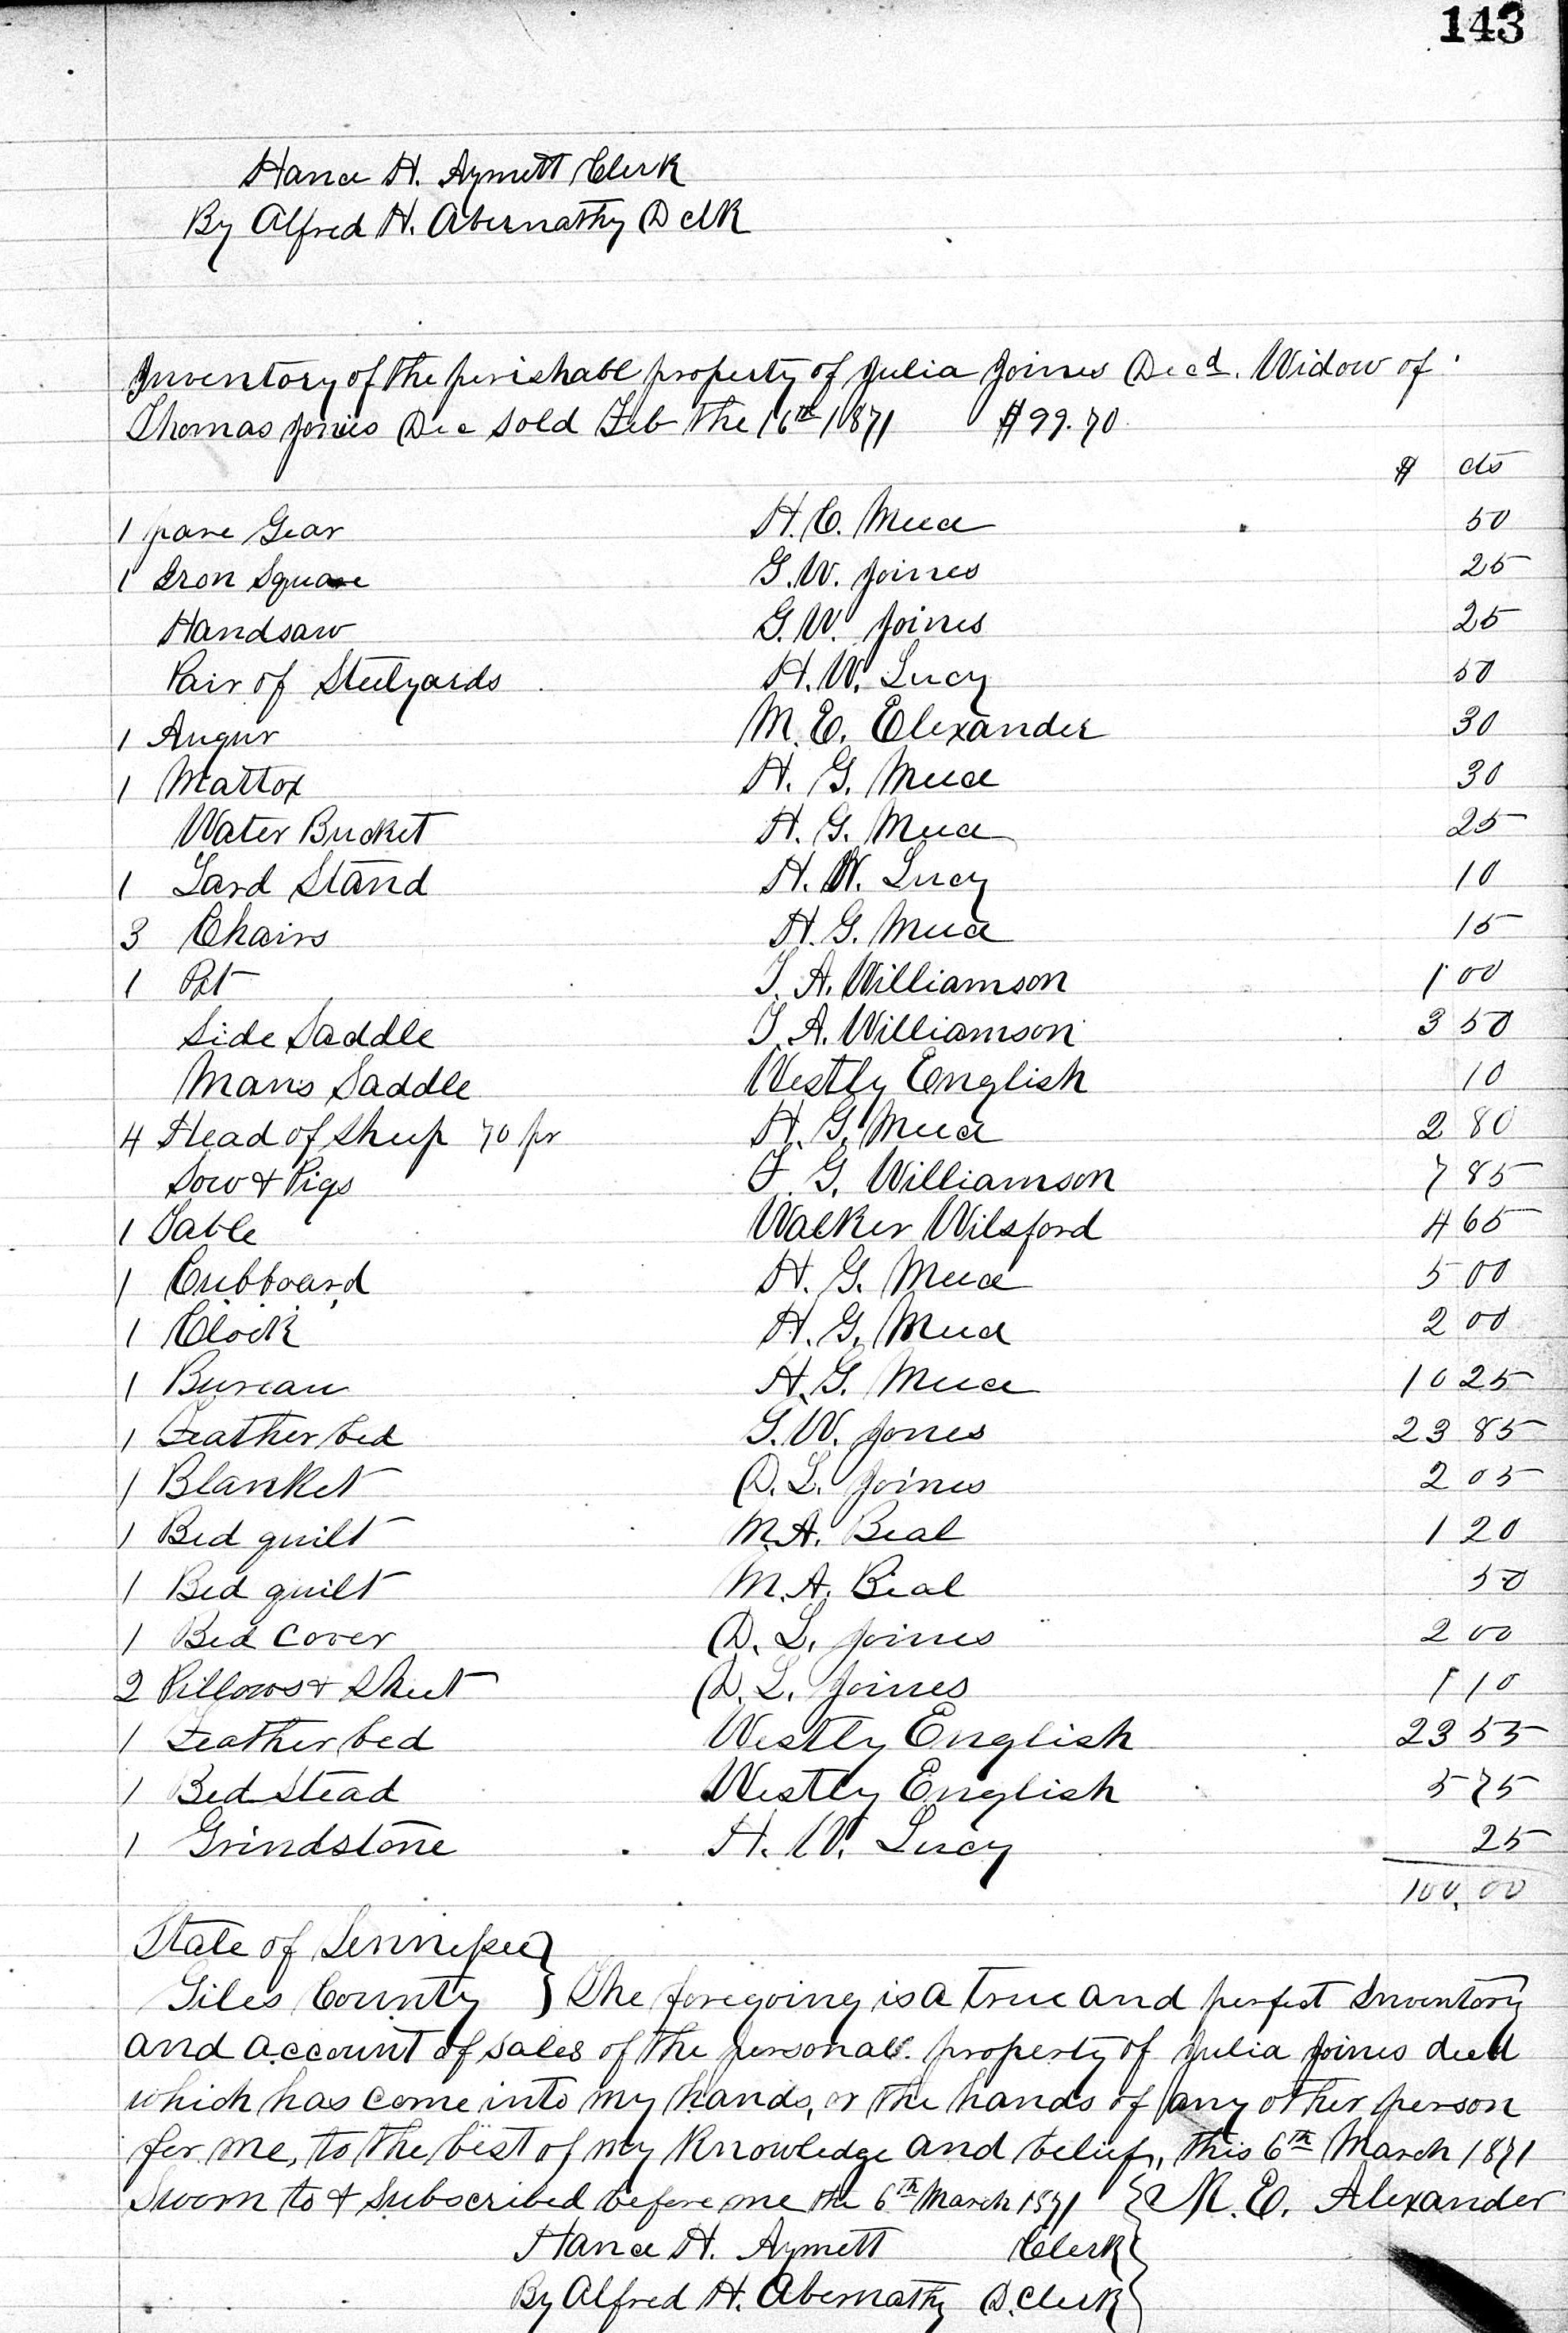 143
Hance H. Aymett Clerk
By Alfred H. Abernathy D clk
Inventory of the perishabl property of Julia Joines Decd. Widow of
Thomas Joines Dec sold Feb the 16th 1871 $99.70
$ cts
1 pare Gear H. C. Meece 50
1 Iron Square G. W. Joines 25
Handsaw G. W. Joines 25
Pair of Steelyards H. W. Lucy 50
1 Augur M. E. Elexander 30
1 Mattox H. G. Meece 30
Water Bucket H. G. Meece 25
1 Lard Stand H. W. Lucy 10
3 Chairs H. G. Meece 15
1 Pot T. A. Williamson 1 00
Side Saddle T. A. Williamson 3 50
Mans Saddle Westly English 10
4 Head of Sheep 70 pr H. G. Meece 2 80
Sow & Pigs F. G. Williamson 7 85
1 Table Walker Wilsford 4 65
1 Cubboard H. G. Meece 5 00
1 Clock H. G. Meece 2 00
1 Bureau H. G. Meece 10 25
1 Feather bed G. W. Jones 23 85
1 Blanket D. L. Joines 2 05
1 Bed quilt M. A. Beal 1 20
1 Bed quilt M. A. Beal 50
1 Bed cover D. L. Joines 2 00
2 Pillows & Sheet D. L. Joines 1 10
1 Feather bed Westly English 23 55
1 Bed Stead Westly English 5 75
1 Grindstone H. W. Lucy 25
100.00
State of Tennessee }
Giles County } The foregoing is a true and perfect Inventory
and account of sales of the personal property of Julia Joines decd
which has come into my hands, or the hands of any other person
for me, to the best of my knowledge and belief, this 6th March 1871
Sworn to & subscribed before me the 6th March 1871 } M. E. Alexander
Hance H. Aymett Clerk }
By Alfred H. Abernathy D. Clerk }